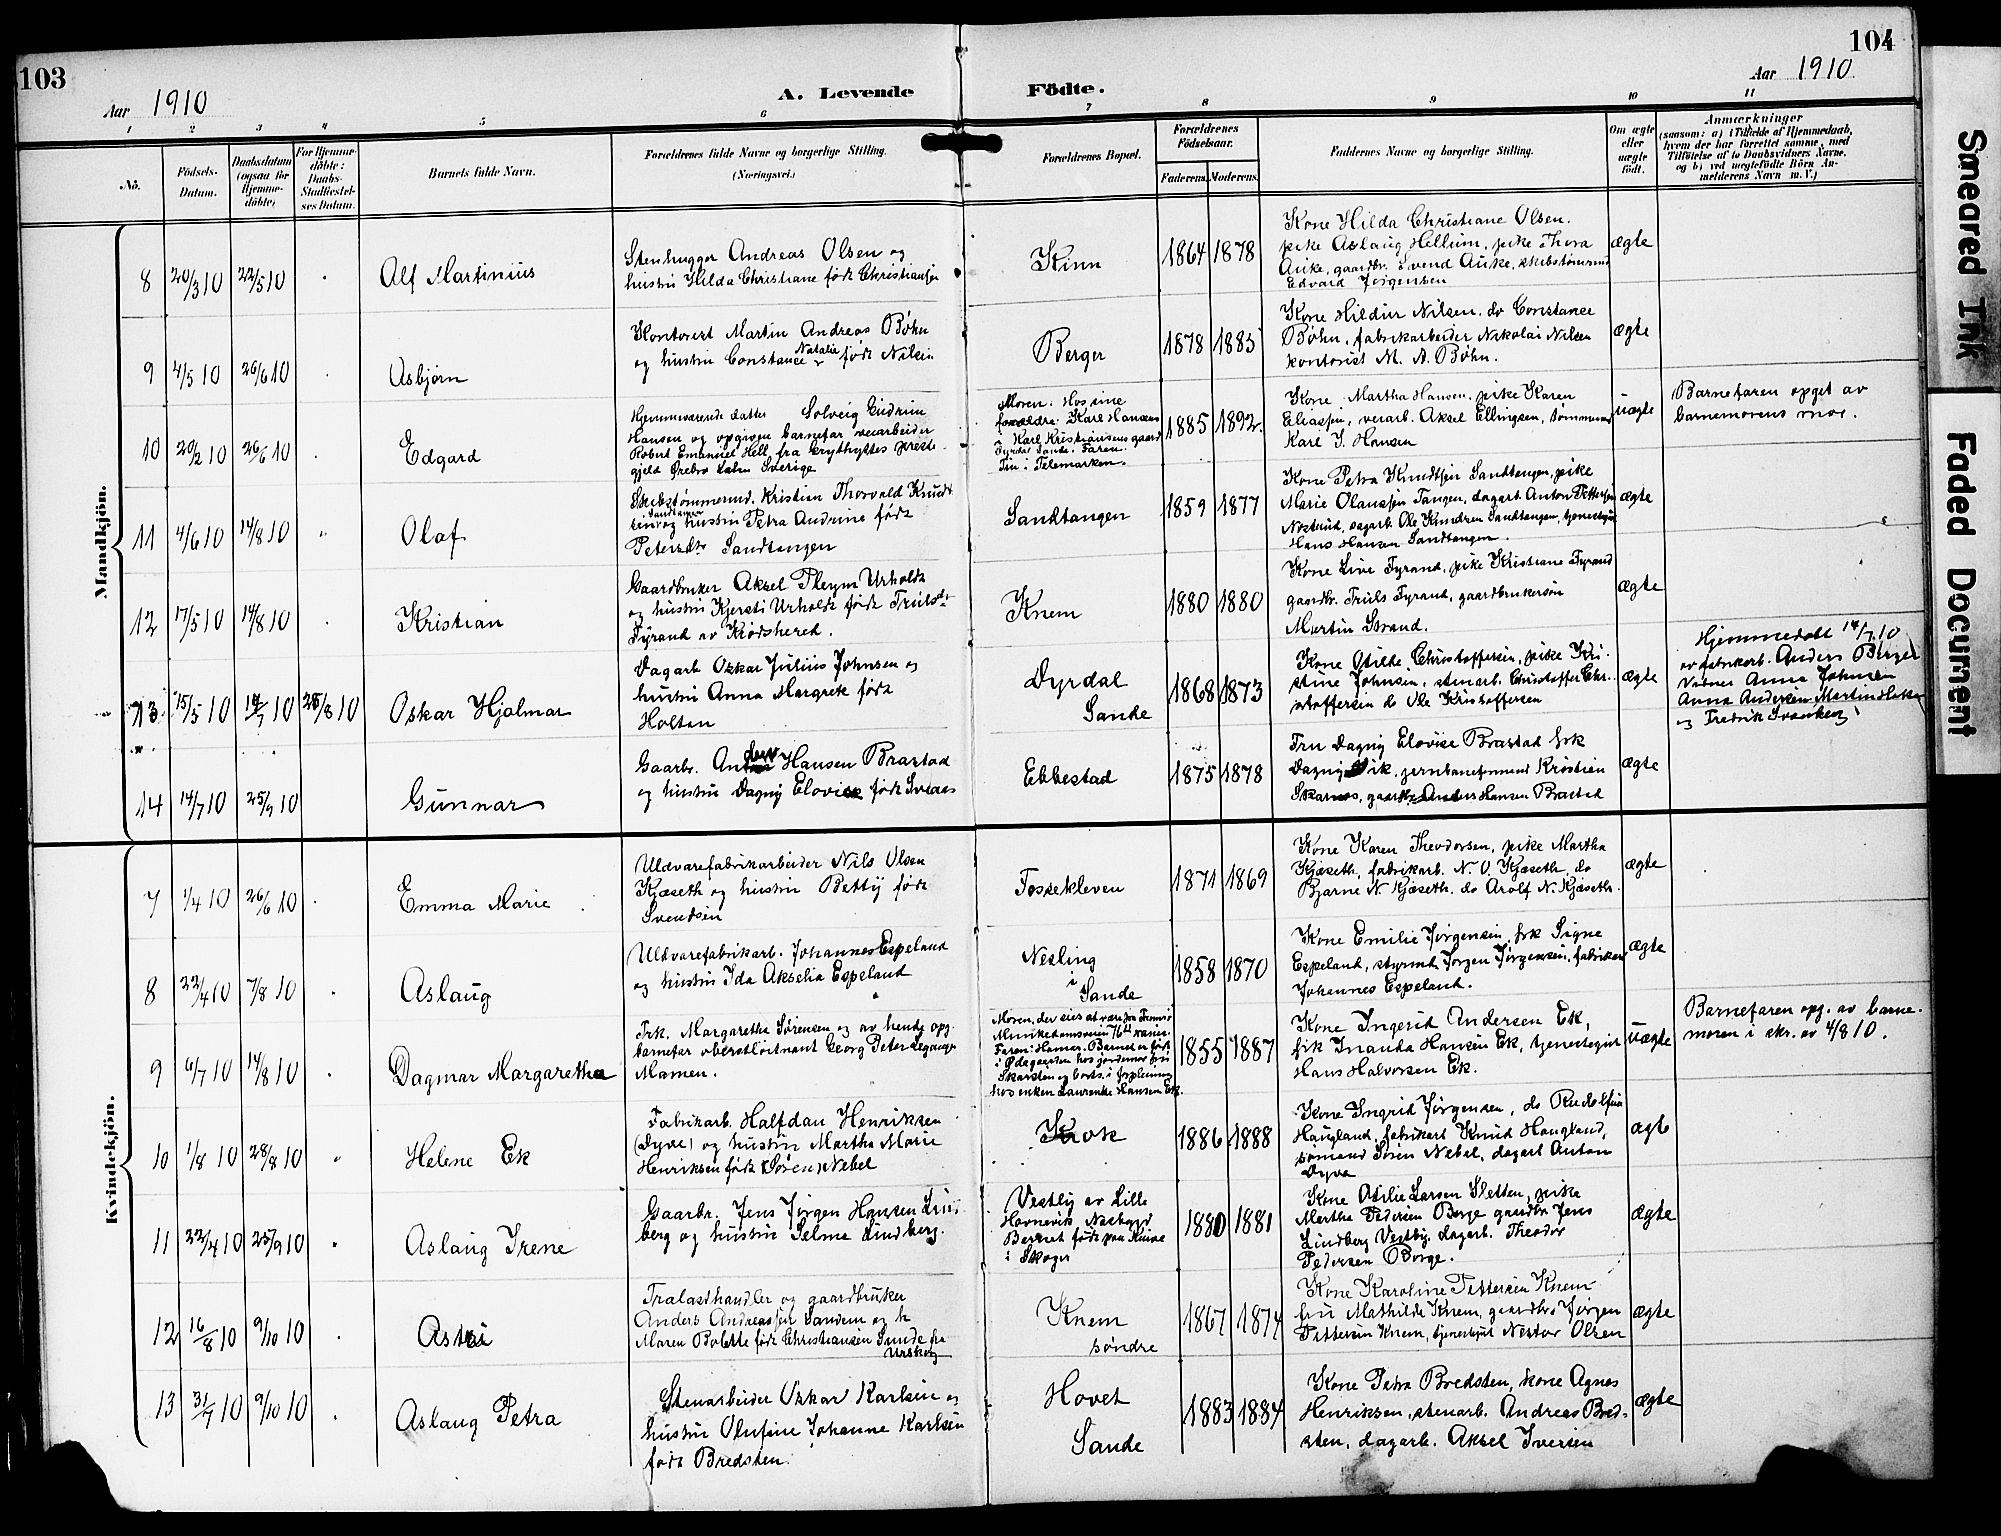 103
104
Aar 1910
A. Levende
Födte.
Aar 1910
1 2 3 4 5 6 7 8 9 10 11
No.
Födsels-
Datum.
Daabsdatum
(ogsaa for
Hjemme-
döbte)
For Hjemme-
döbte:
Daabs-
Stadfæstel-
ses Datum.
Barnets fulde Navn.
Forældrenes fulde Navne og borgerlige Stilling.
(Næringsvei.)
Forældrenes Bopæl.
Forældrenes
Födselsaar.
Faderens. Moderens.
Faddernes Navne og borgerlige Stilling.
Om ægte
eller
uægte
födt.
Anmærkninger
(saasom: a) i Tilfælde af Hjemmedaab,
hvem der har forrettet samme, med
Tilföielse af to Daabsvidners Navne,
og b) ved uegtefödte Börn An-
melderens Navn m. V.)
Mandkjön.
8 20/3 10 22/5 10 Alf Martinius
Stenhugger Andreas Olsen og
hustru Hilda Christiane født Christiansen
Kinn
1864 1878
Kone Hilda Christiane Olsen.
pike Aslaug Hellum, pike Thora
Auke, gaardbr. Svend Auke, skibstømmermd
Edvard Jørgensen
ægte
9 4/5 10 26/6 10 Asbjørn
Kontorist Martin Andreas Bøhn
og hustru Constance Natalie født Nilsen
Berger
1878 1885
Kone Hildur Nilsen. do Constance
Bøhn, fabrikarbeider Nikolai Nilsen
kontorist M. A. Bøhn.
ægte
10 20/2 10 26/6 10 Edgard
Hjemmeværende datter Solveig Gudrun
Hansen og opgiven barnefar verarbeider
Robert Emanuel Hell, fra Grythyttes preste-
gjeld Ørebro Læhn Sverige
Moren: Hos sine
forældre: Karl Hansens
i Karl Kristiansens gaard
Fyrdal Sande. Faren:
Tin i Telemarken.
1885 1892.
Kone Martha Hansen, pike Karen
Eliassen, verarb. Aksel Ellingsen, tømmermd
Karl J. Hansen
uægte
Barnefaren opget av
barnemorens mor.
11 4/6 10 14/8 10 Olaf
Skibstømmermd. Kristian Thorvald Knudt-
sen Sandtangen og hustru Petra Andrine født
Petersdtr Sandtangen
Sandtangen
1859 1877
Kone Petra Knudtsen Sandtangen, pike
Marie Olaussen Tangen, dagarb. Anton Pettersen
Nøstrud, sagarb. Ole Knudsen Sandtangen, tjenestegut
Hans Hansen Sandtangen.
ægte
12 17/5 10 14/8 10 Kristian
Gaardbruker Aksel Pleym Urholdt
og hustru Kjersti Urholdt født Trulsdtr
Fyrand av Krødshered.
Knem
1880 1880
Kone Live Fyrand, pike Kristiane Fyrand
gaardbr. Truls Fyrand, gaardbrukersøn
Martin Strand.
ægte
13 15/5 10 14/7 10 28/8 10 Oskar Hjalmar
Dagarb Oskar Julius Johnsen og
hustru Anna Margrete født
Holtan
Dyrdal
Sande
1868 1873
Kone Otilde Christoffersen, pike Kri-
stine Johnsen, stenarb. Christoffer Chri-
stoffersen do Ole Kristoffersen
ægte
Hjemmedøbt 14/7 10
av fabrikarb. Anders Berger
Vidner Anna Johnsen
Anna Andersen Martin Holtan
og Fredrik Svanberg
14 14/7 10 25/9 10 Gunnar
Gaarbr. Anders Hansen Brastad
og hustru Dagny Elovise født Sveaas
Ebbestad
1875 1878
Fru Dagny Elovise Brastad frk
Dagny Vik, jernbaneformand Kristian
Skarnes, gaardbr Anders Hansen Brastad
ægte
Kvindekjön.
7 1/4 10 26/6 10 Emma Marie
Uldvarefabrikarbeider Nils Olsen
Kjæseth og hustru Betty født
Svendsen
Fossekleven
1871 1869
Kone Karen Theodorsen, pike Martha
Kjæseth, fabrikarb. N. O. Kjæseth, do
Bjarne N. Kjæseth. do Arolf N. Kjæseth.
ægte
8 22/4 10 7/8 10 Aslaug
Uldvarefabrikarb. Johannes Espeland
og hustru Ida Akselia Espeland
Nesling
i
Sande
1858 1870
Kone Emilie Jørgensen, frk Signe
Espeland, styrmd. Jørgen Jørgensen, fabrikarb
Johannes Espeland.
ægte
9 6/7 10 14/8 10 Dagmar Margaretha
Frk. Margaretha Sørensen og av hende opg.
barnefar oberstløitnant Georg Peter Leganger
Mamen.
Moren, der sies at være fra Tromsø
Faren: Hamar. Barnet er født
i Ødegaarden hos jordemor fru
Skarsten og borts. i forpleining
hos enken Laurentse Hansen Ek.
1855 1887
Kone Ingerid Andersen Ek,
frk Inanda Hansen Ek, tjenestegut
Hans Halvorsen Ek.
uægte
Barnefaren opg. av barne-
moren i skr. av 4/8 10.
10 1/8 10 28/8 10 Helene Ek
Fabrikarb. Halfdan Henriksen
(Dyve) og hustru Martha Marie
Henriksen født (Søren) Nebel
Krok
1886 1888
Kone Ingrid Jørgensen, do Rudolfine
Haugland, fabrikarb Knud Haugland,
sømand Søren Nebel, dagarb Anton
Dyve
ægte
11 22/4 10 25/9 10 Aslaug Irene
Gaarbr. Jens Jørgen Hansen Lind-
berg og hustru Selma Lindberg.
Vestby av Lille
Barnet født paa
i Skoger
1880 1881
Kone Otilie Larsen Sletten, pike
Martha Pedersen Berge gaardbr Jens
Lindberg Vestby, dagarb. Theodor
Pedersen Berge.
ægte
12 16/8 10 9/10 10 Astri
Tralasthandler og gaardbruker
Anders Andreassen Sanden og h
Maren Bolette født Christiansen Sunde fra
Urskog
Knem
søndre
1867 1874
Kone Karoline Pettersen Knem
fru Mathilde Knem, gaardbr. Jørgen
Pettersen Knem, tjenestegut Nestor Olsen
ægte
13 31/7 10 9/10 10 Aslaug Petra
Stenarbeider Oskar Karlsen og
hustru Olufine Johanne Karlsen
født Bredsten.
Hovet
Sande
1883 1884
Kone Petra Bredsten, kone Agnes
Henriksen, stenarb. Andreas Bred-
sten, dagarb. Aksel Iversen
ægte
Smeared Ink
Faded Document